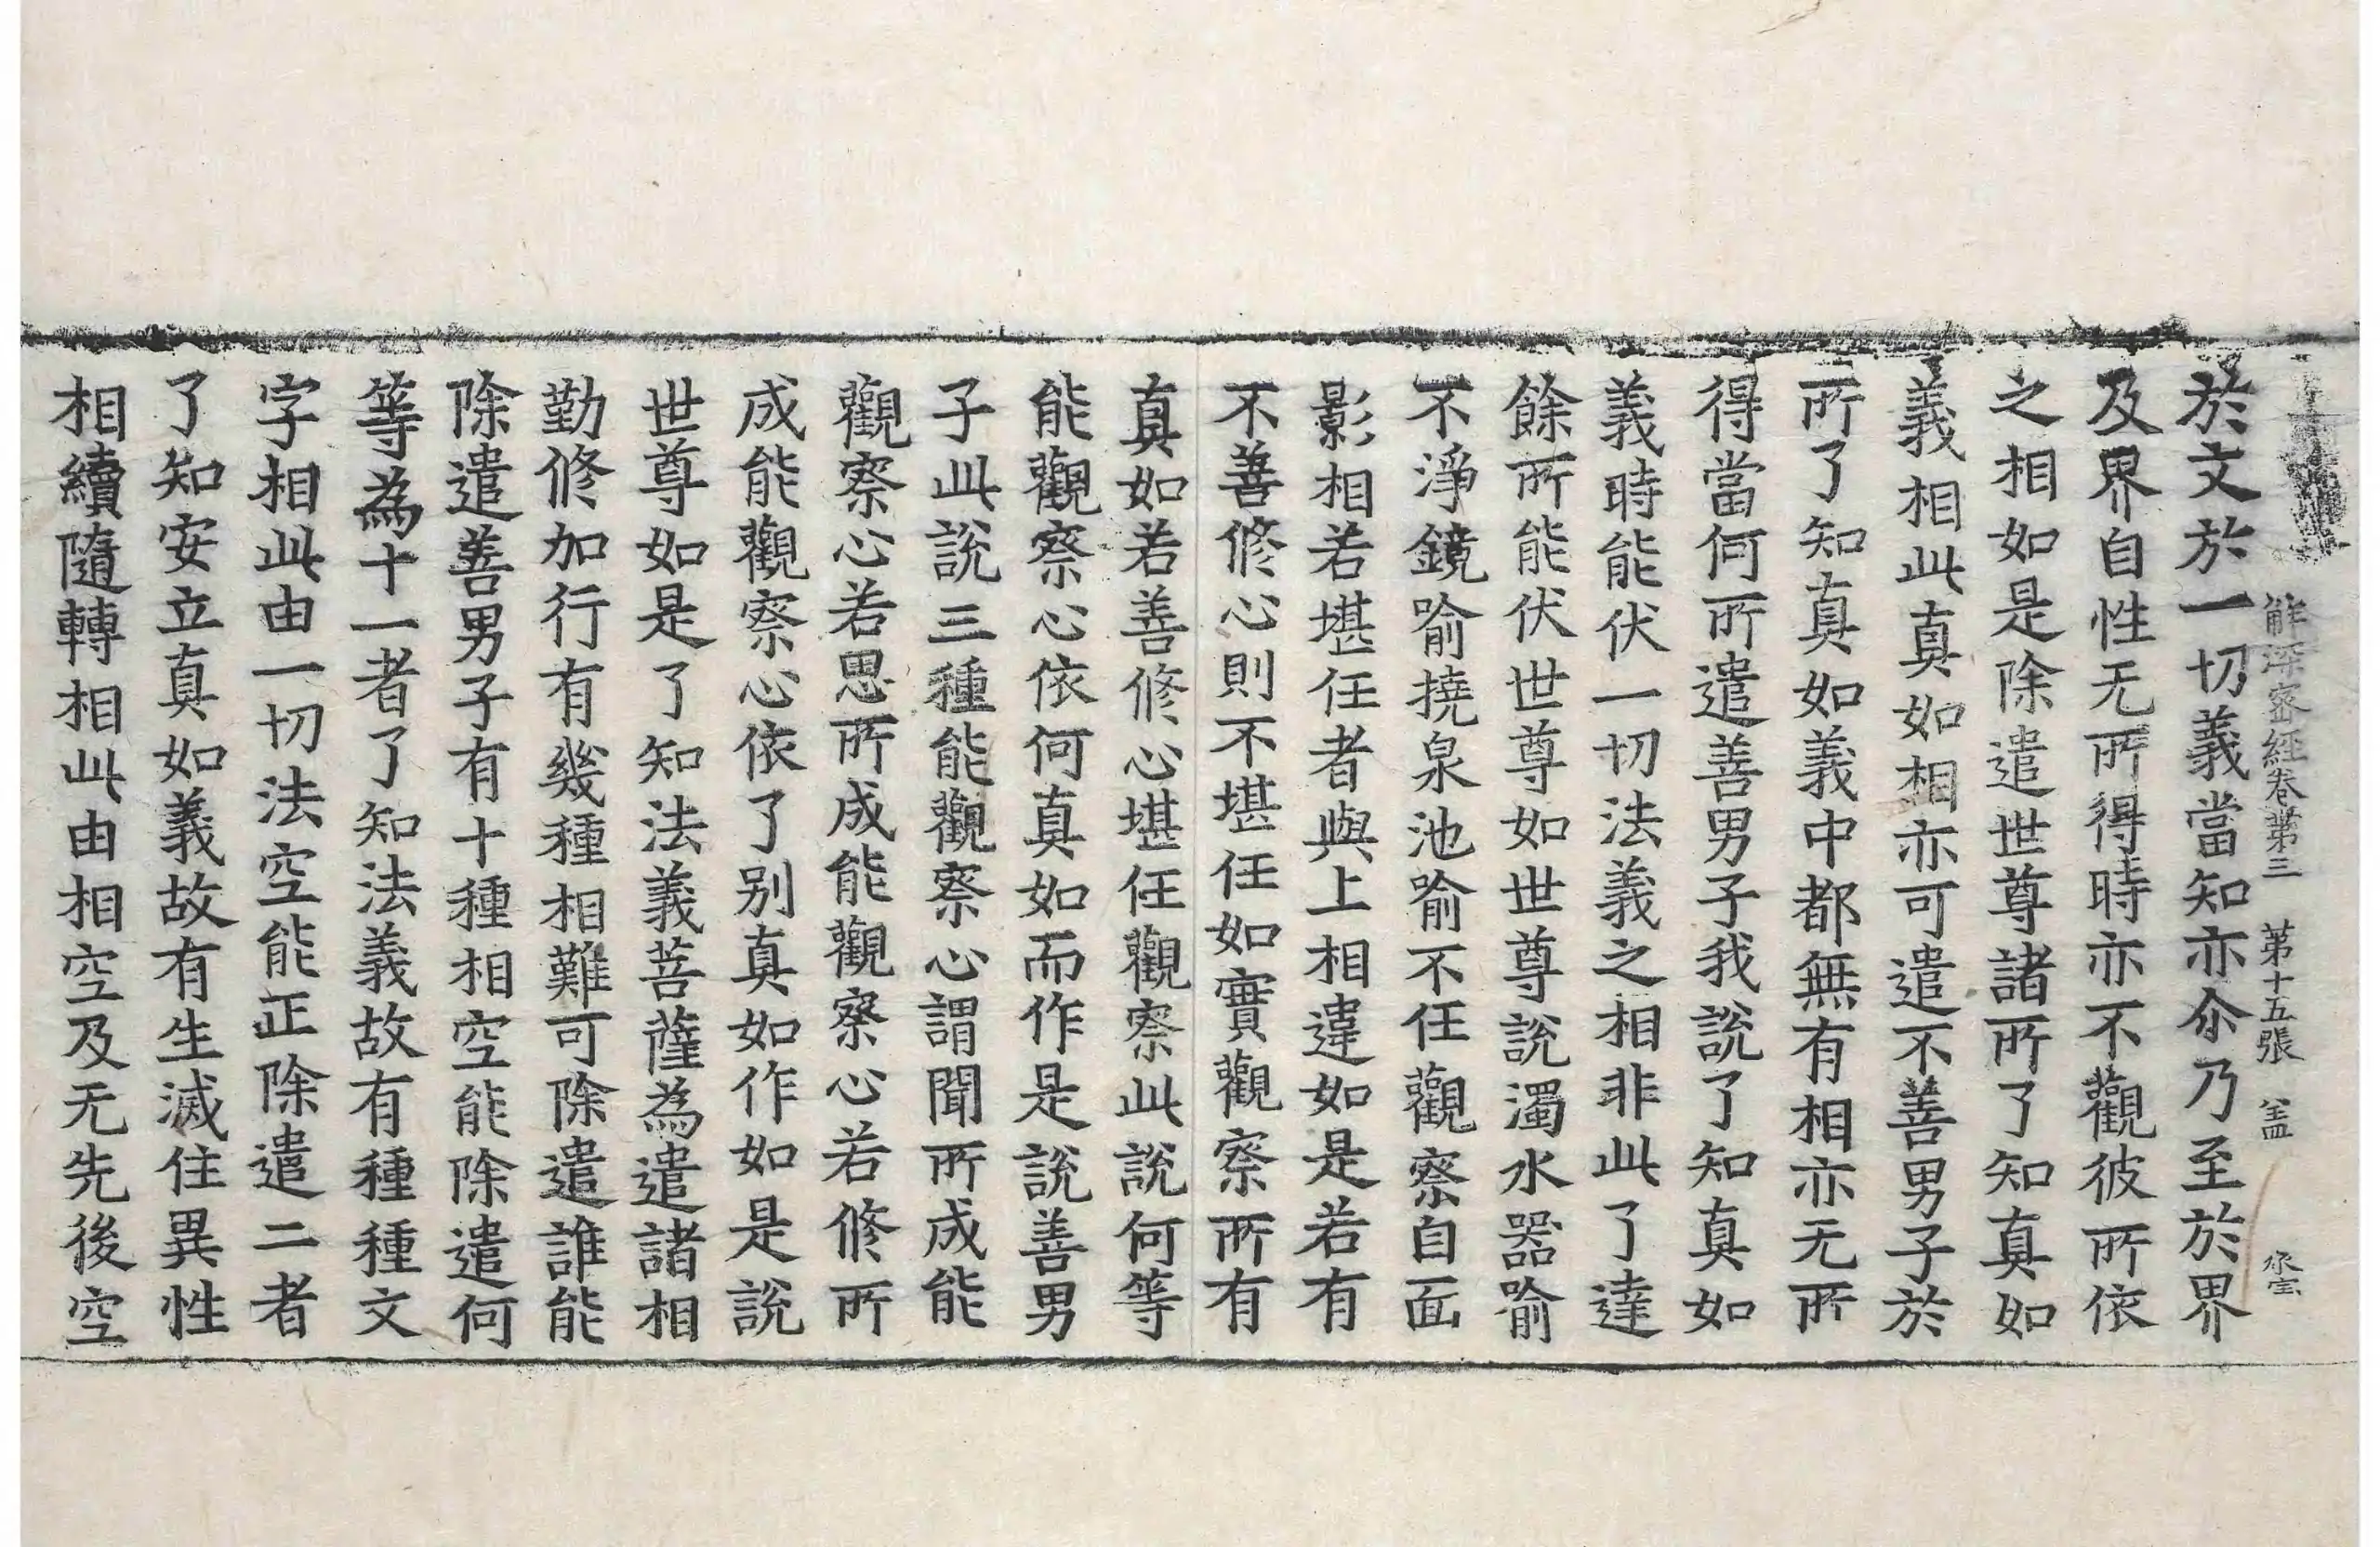 解深密經卷第三 第十五張 盖
於文於一切義當知亦尒乃至於界
及界自性无所得時亦不觀彼所依
之相如是除遣世尊諸所了知真如
義相此真如相亦可遣不善男子於
所了知真如義中都無有相亦无所
得當何所遣善男子我說了知真如
義時能伏一切法義之相非此了達
餘所能伏世尊如世尊說濁水器喻
不淨鏡喻撓泉池喻不任觀察自面
影相若堪任者與上相違如是若有
不善修心則不堪任如實觀察所有
真如若善修心堪任觀察此說何等
能觀察心依何真如而作是說善男
子此說三種能觀察心謂聞所成能
觀察心若思所成能觀察心若修所
成能觀察心依了别真如作如是說
世尊如是了知法義菩薩為遣諸相
勤修加行有幾種相難可除遣誰能
除遣善男子有十種相空能除遣何
等為十一者了知法義故有種種文
字相此由一切法空能正除遣二者
了知安立真如義故有生滅住異性
相續隨轉相此由相空及无先後空